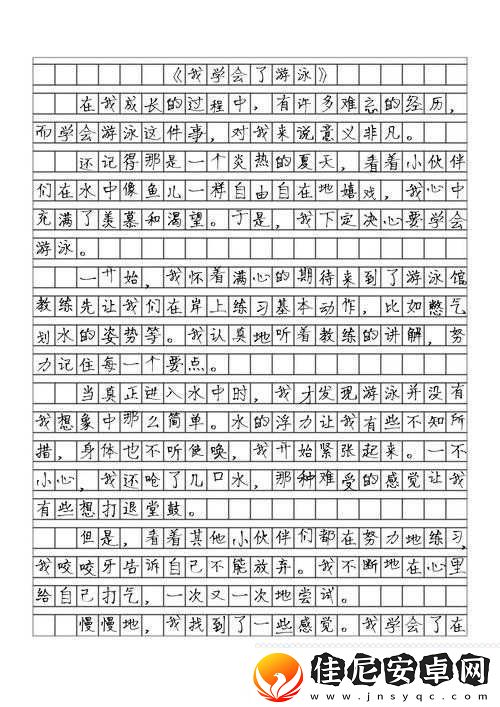 《我学会了游泳》
在我成长的过程中，有许多难忘的经历，
而学会游泳这件事，对我来说意义非凡。
还记得那是一个炎热的夏天，看着小伙伴
们在水中像鱼儿一样自由自在地嬉戏，我心中
充满了羡慕和渴望。于是，我下定决心要学会
游泳。
一开始，我怀着满心的期待来到了游泳馆
教练先让我们在岸上练习基本动作，比如憋气
划水的姿势等。我认真地听着教练的讲解，努
力记住每一个要点。
当真正进入水中时，我才发现游泳并没有
我想象中那么简单。水的浮力让我有些不知所
措，身体也不听使唤，我开始紧张起来。一不
小心，我还呛了几口水，那种难受的感觉让我
有些想打退堂鼓。
但是，看着其他小伙伴们都在努力地练习，
我咬咬牙告诉自己不能放弃。我不断地在心里
给自己打气，一次又一次地尝试。
慢慢地，我找到了一些感觉。我学会了在
佳尼安卓网
www.jnsyqc.com